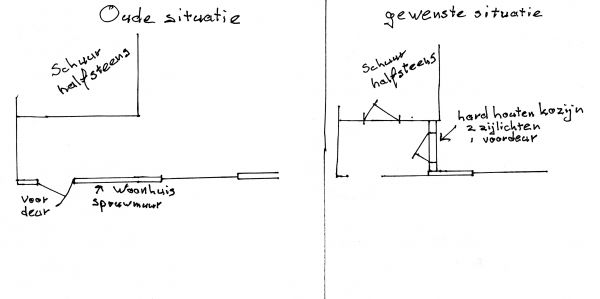 Oude situatie
Schuur
halfsteens
voor
deur
woonhuis
spouwmuur
gewenste situatie
Schuur
halfsteens
hard houten kozijn
2 zijlichten
1 voordeur